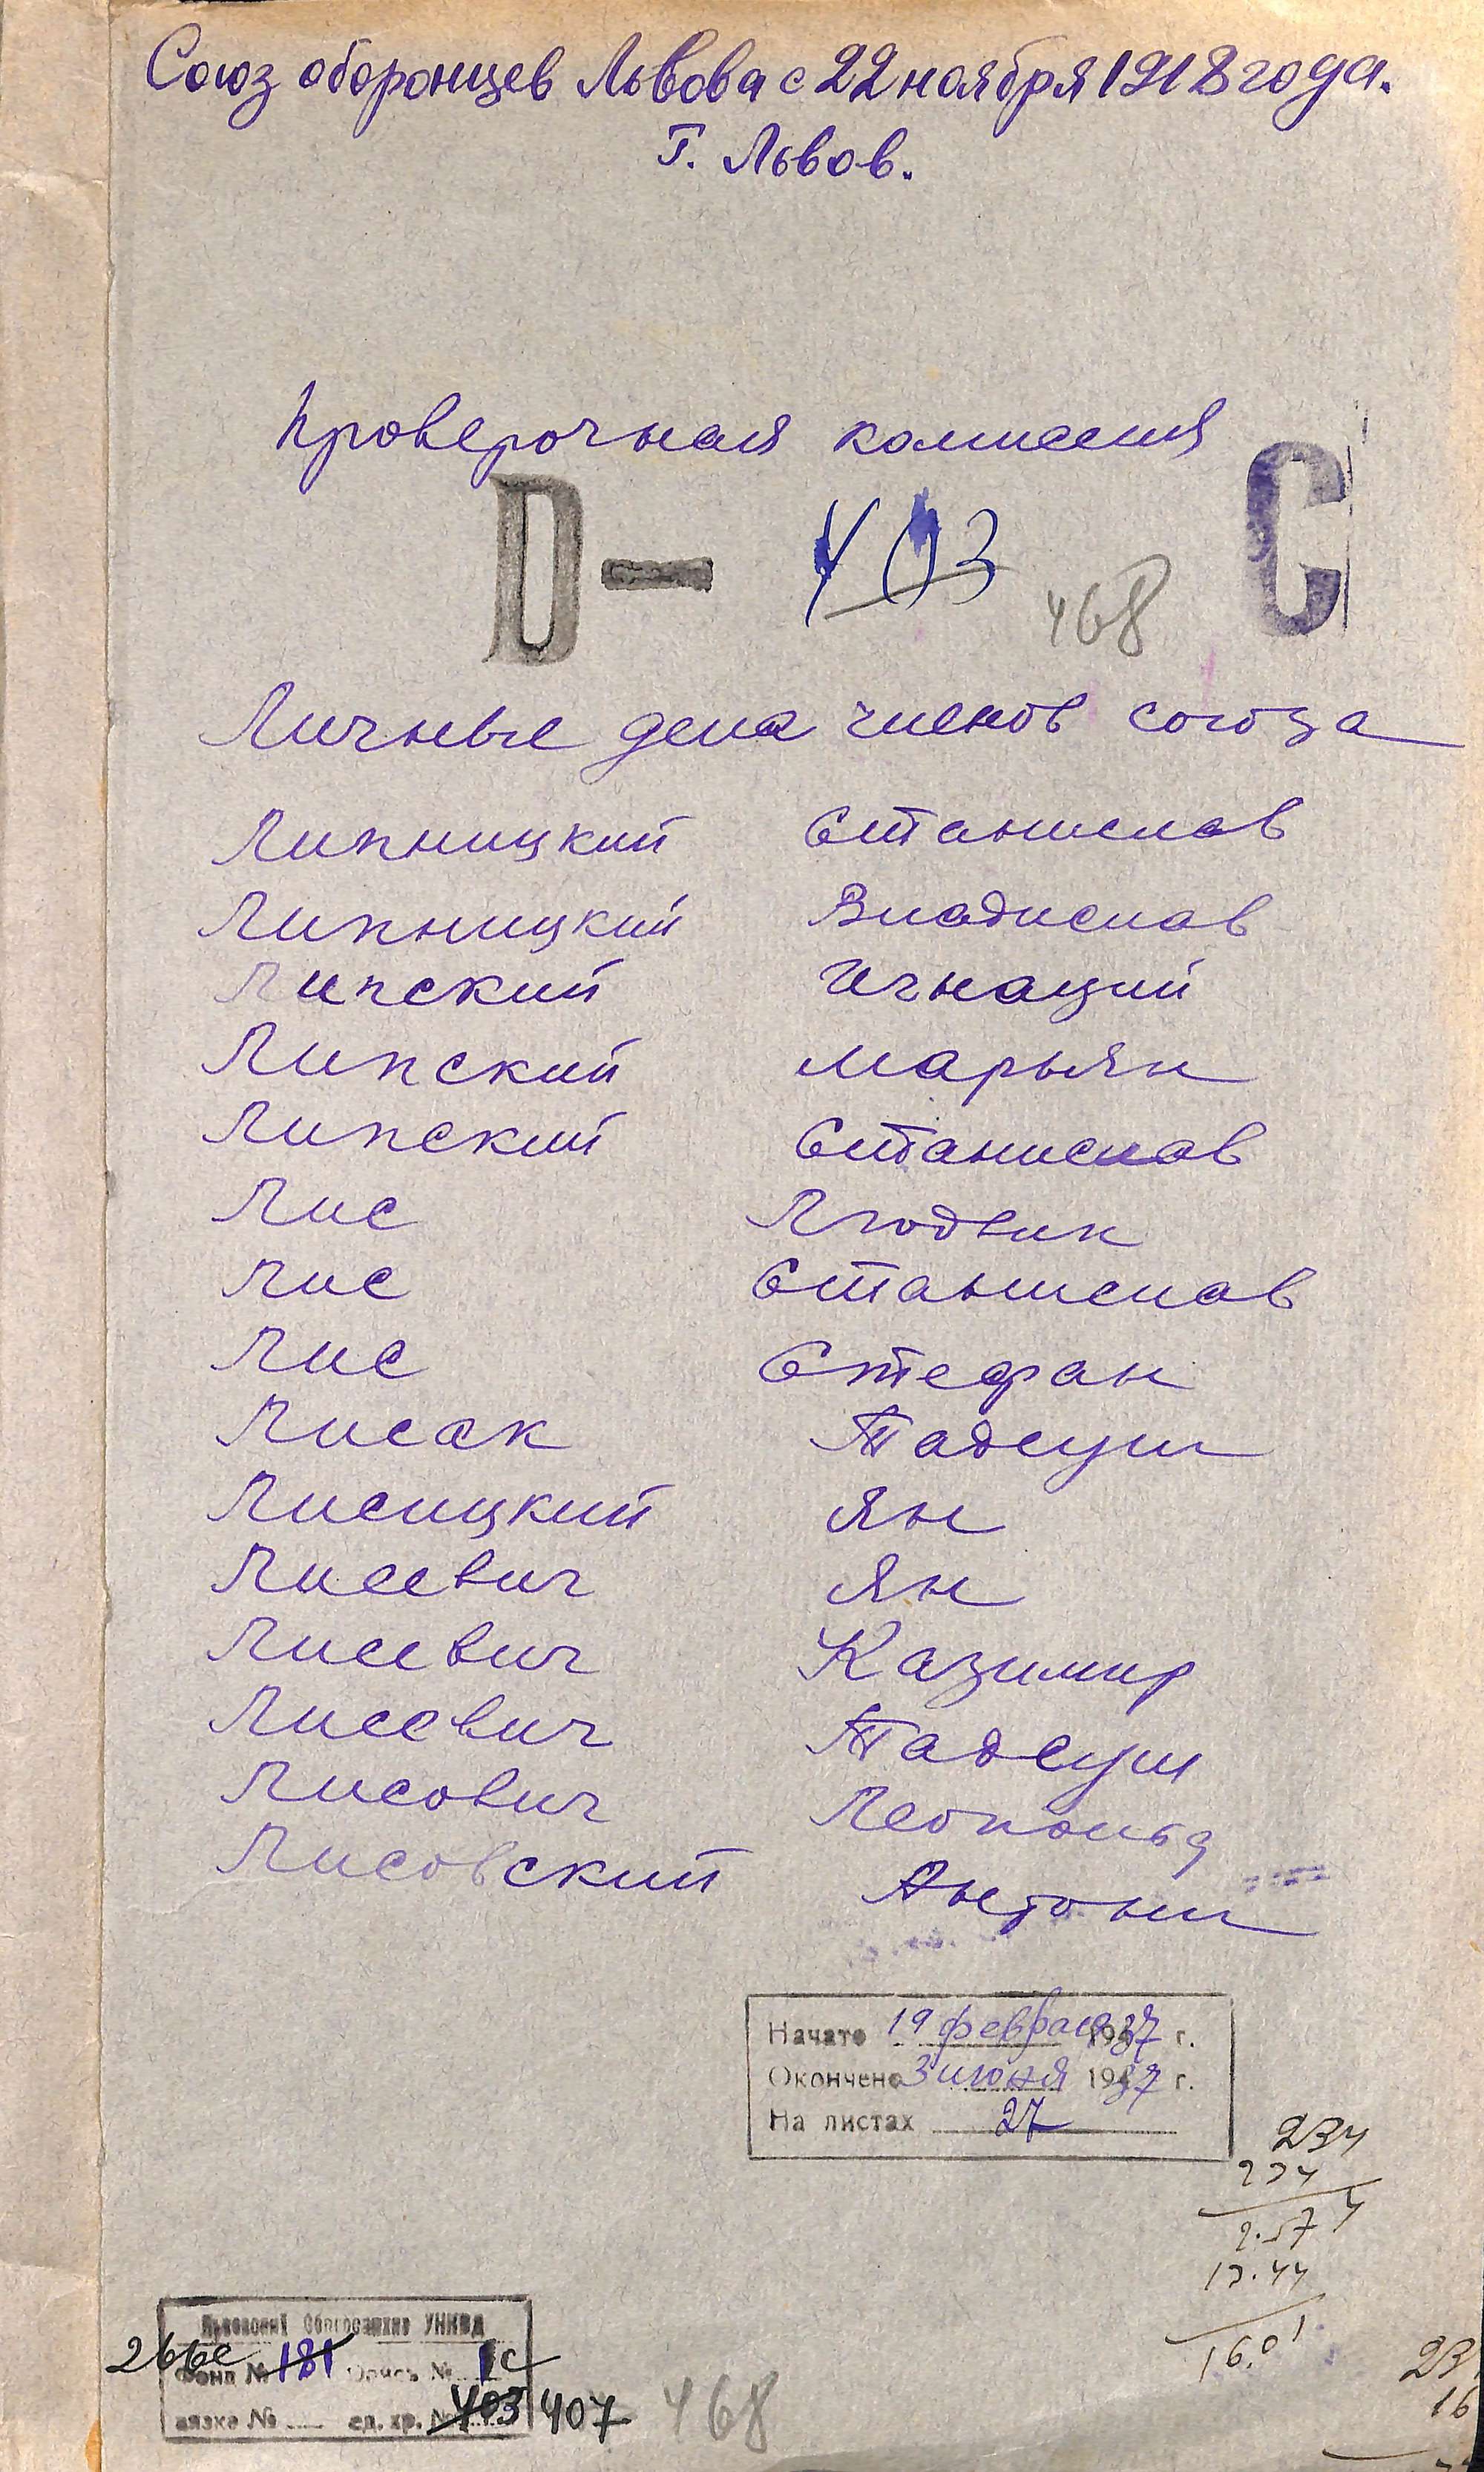 Союз оборонцев Львова с 22 ноября 1918 года.
Г. Львов.
Проверочная комиссия
D— 403 468 С
Личные дела членов союза
Липницкий Станислав
Липницкий Владислав
Липский Игнаций
Липский Марьян
Липский Станислав
Лис Людвик
Лис Станислав
Лис Стефан
Лисак Тадеуш
Лисицкий Ян
Лисевич Ян
Лисевич Казимир
Лисевич Тадеуш
Лисович Леопольд
Лисовский Антони
Начато 19 февраля 1937 г.
Окончено 3 июня 1937 г.
На листах 27
234
234
4
2.57
13.44
16.01
23
16
Львовский Облгосархив УНКВД
266с Фонд № 181 Опись № 1с
вязка № ед. хр. № 403 407 468